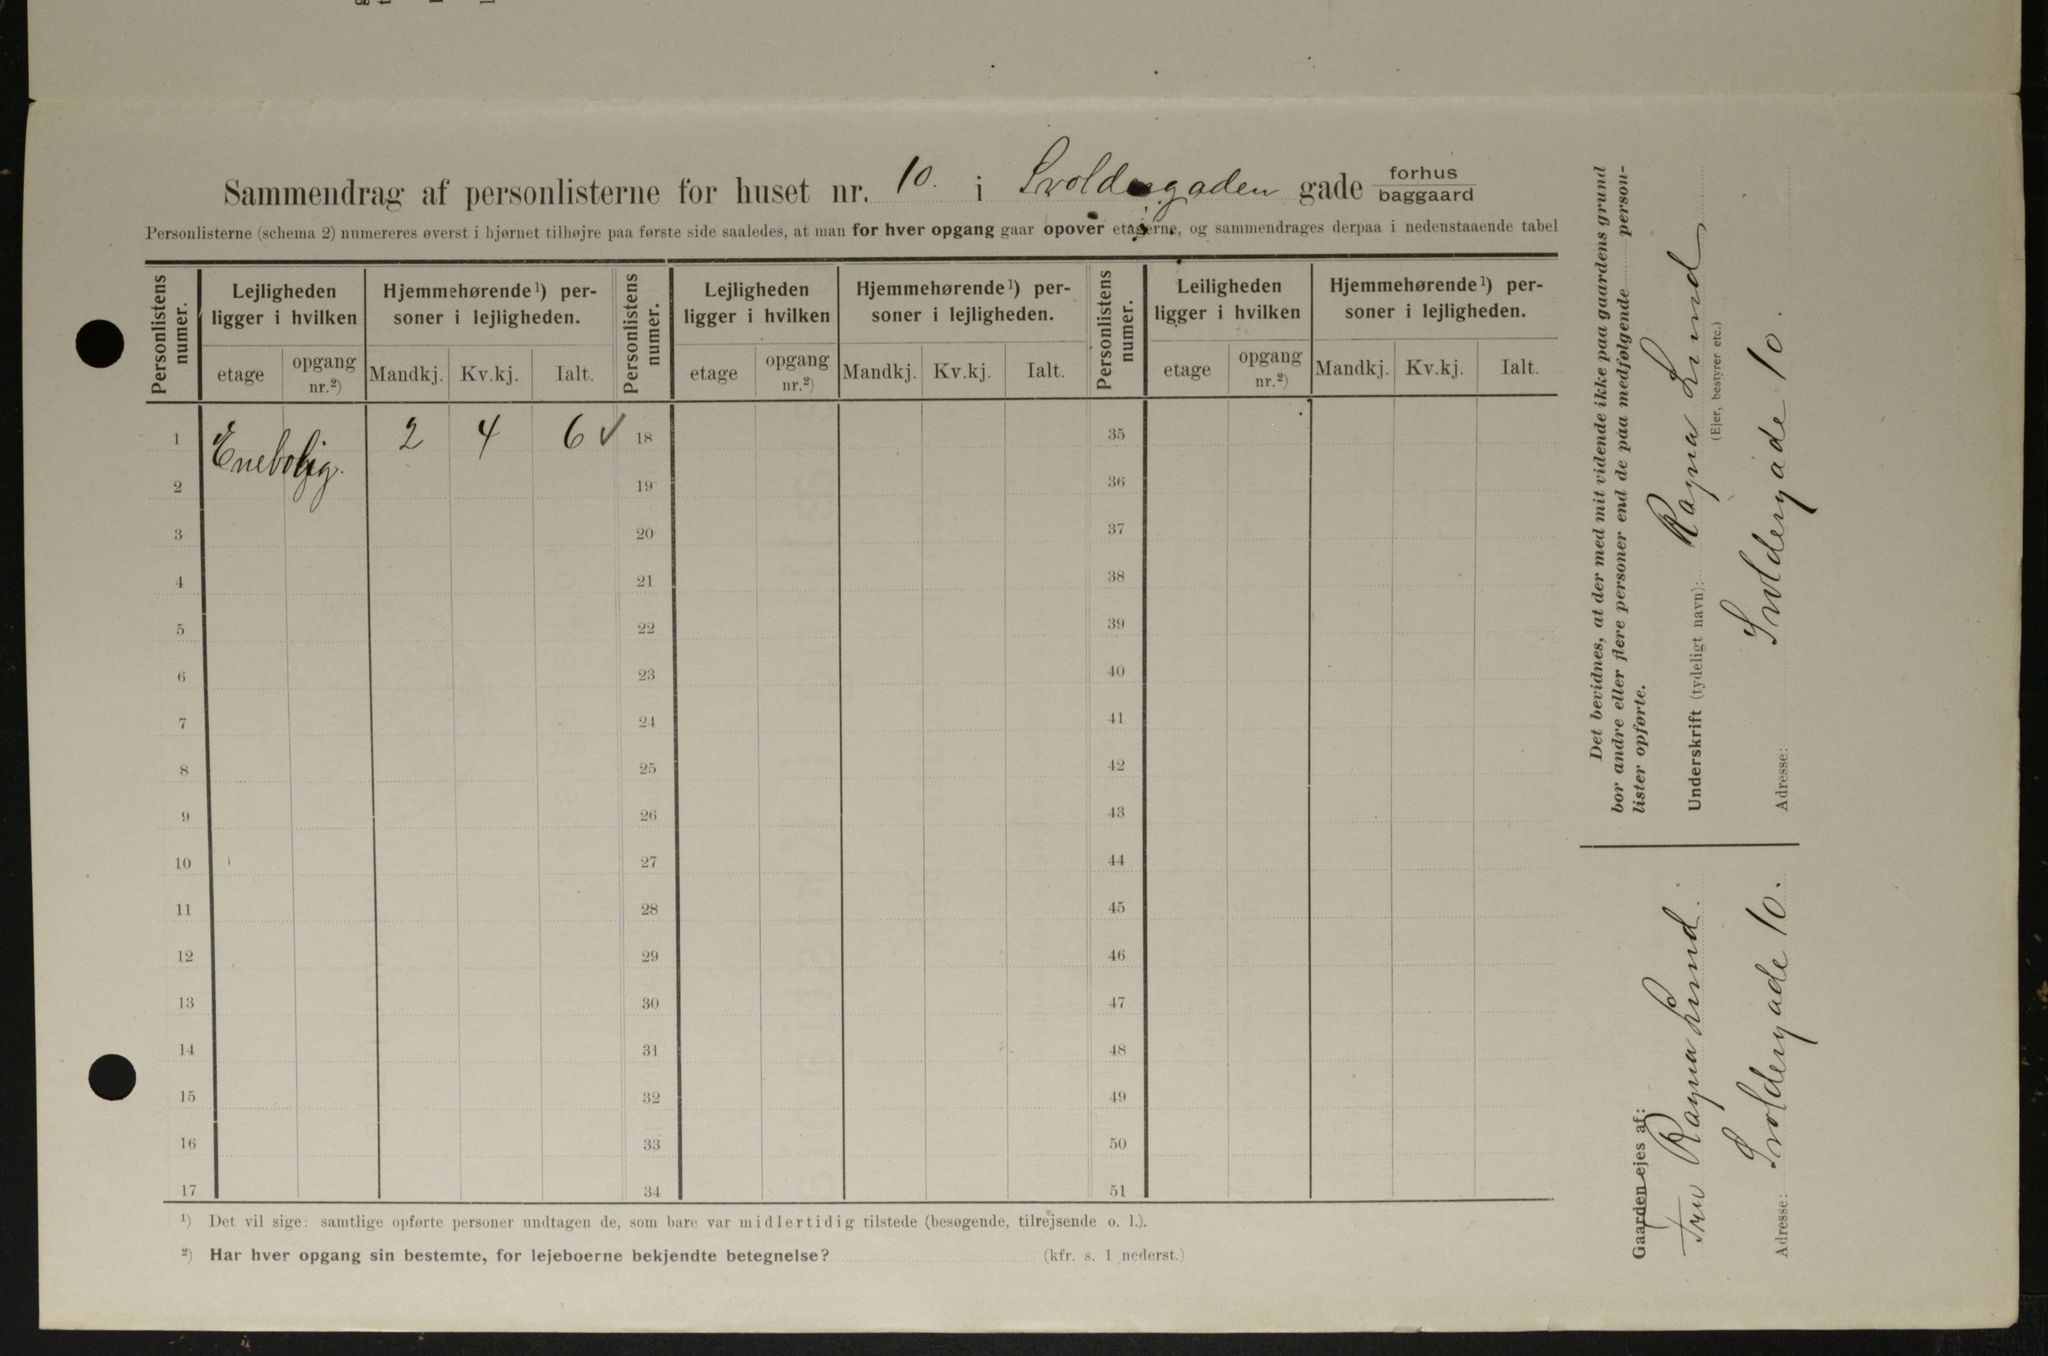 Sammendrag af personlisterne for huset nr. 10. i Svoldergaden gade forhus
baggaard
Personlisterne (schema 2) numereres øverst i hjørnet tilhøjre paa første side saaledes, at man for hver opgang gaar opover etagerne, og sammendrages derpaa i nedenstaaende tabel
Personlistens numer. Lejligheden ligger i hvilken Hjemmehørende ¹) personer i lejligheden. Personlistens numer. Lejligheden ligger i hvilken Hjemmehørende ¹) personer i lejligheden. Personlistens numer. Leiligheden ligger i hvilken Hjemmehørende ¹) personer i lejligheden.
etage opgang nr.²) Mandkj. Kv.kj. Ialt. etage opgang nr.²) Mandkj. Kv.kj. Ialt. etage opgang nr.²) Mandkj. Kv.kj. Ialt.
1 Enebolig. 2 4 6 ✓ 18 35
2 19 36
3 20 37
4 21 38
5 22 39
6 23 40
7 24 41
8 25 42
9 26 43
10 27 44
11 28 45
12 29 46
13 30 47
14 31 48
15 32 49
16 33 50
17 34 51
¹) Det vil sige: samtlige opførte personer undtagen de, som bare var midlertidig tilstede (besøgende, tilrejsende o. l.).
²) Har hver opgang sin bestemte, for lejeboerne bekjendte betegnelse? (kfr. s. 1 nederst.)
Det bevidnes, at der med mit vidende ikke paa gaardens grund
bor andre eller flere personer end de paa medfølgende person-
lister opførte.
Underskrift (tydeligt navn): Ragna Lund
(Ejer, bestyrer etc.)
Adresse: Svoldergade 10.
Gaarden ejes af:
Fru Ragna Lund.
Adresse: Svoldergade 10.